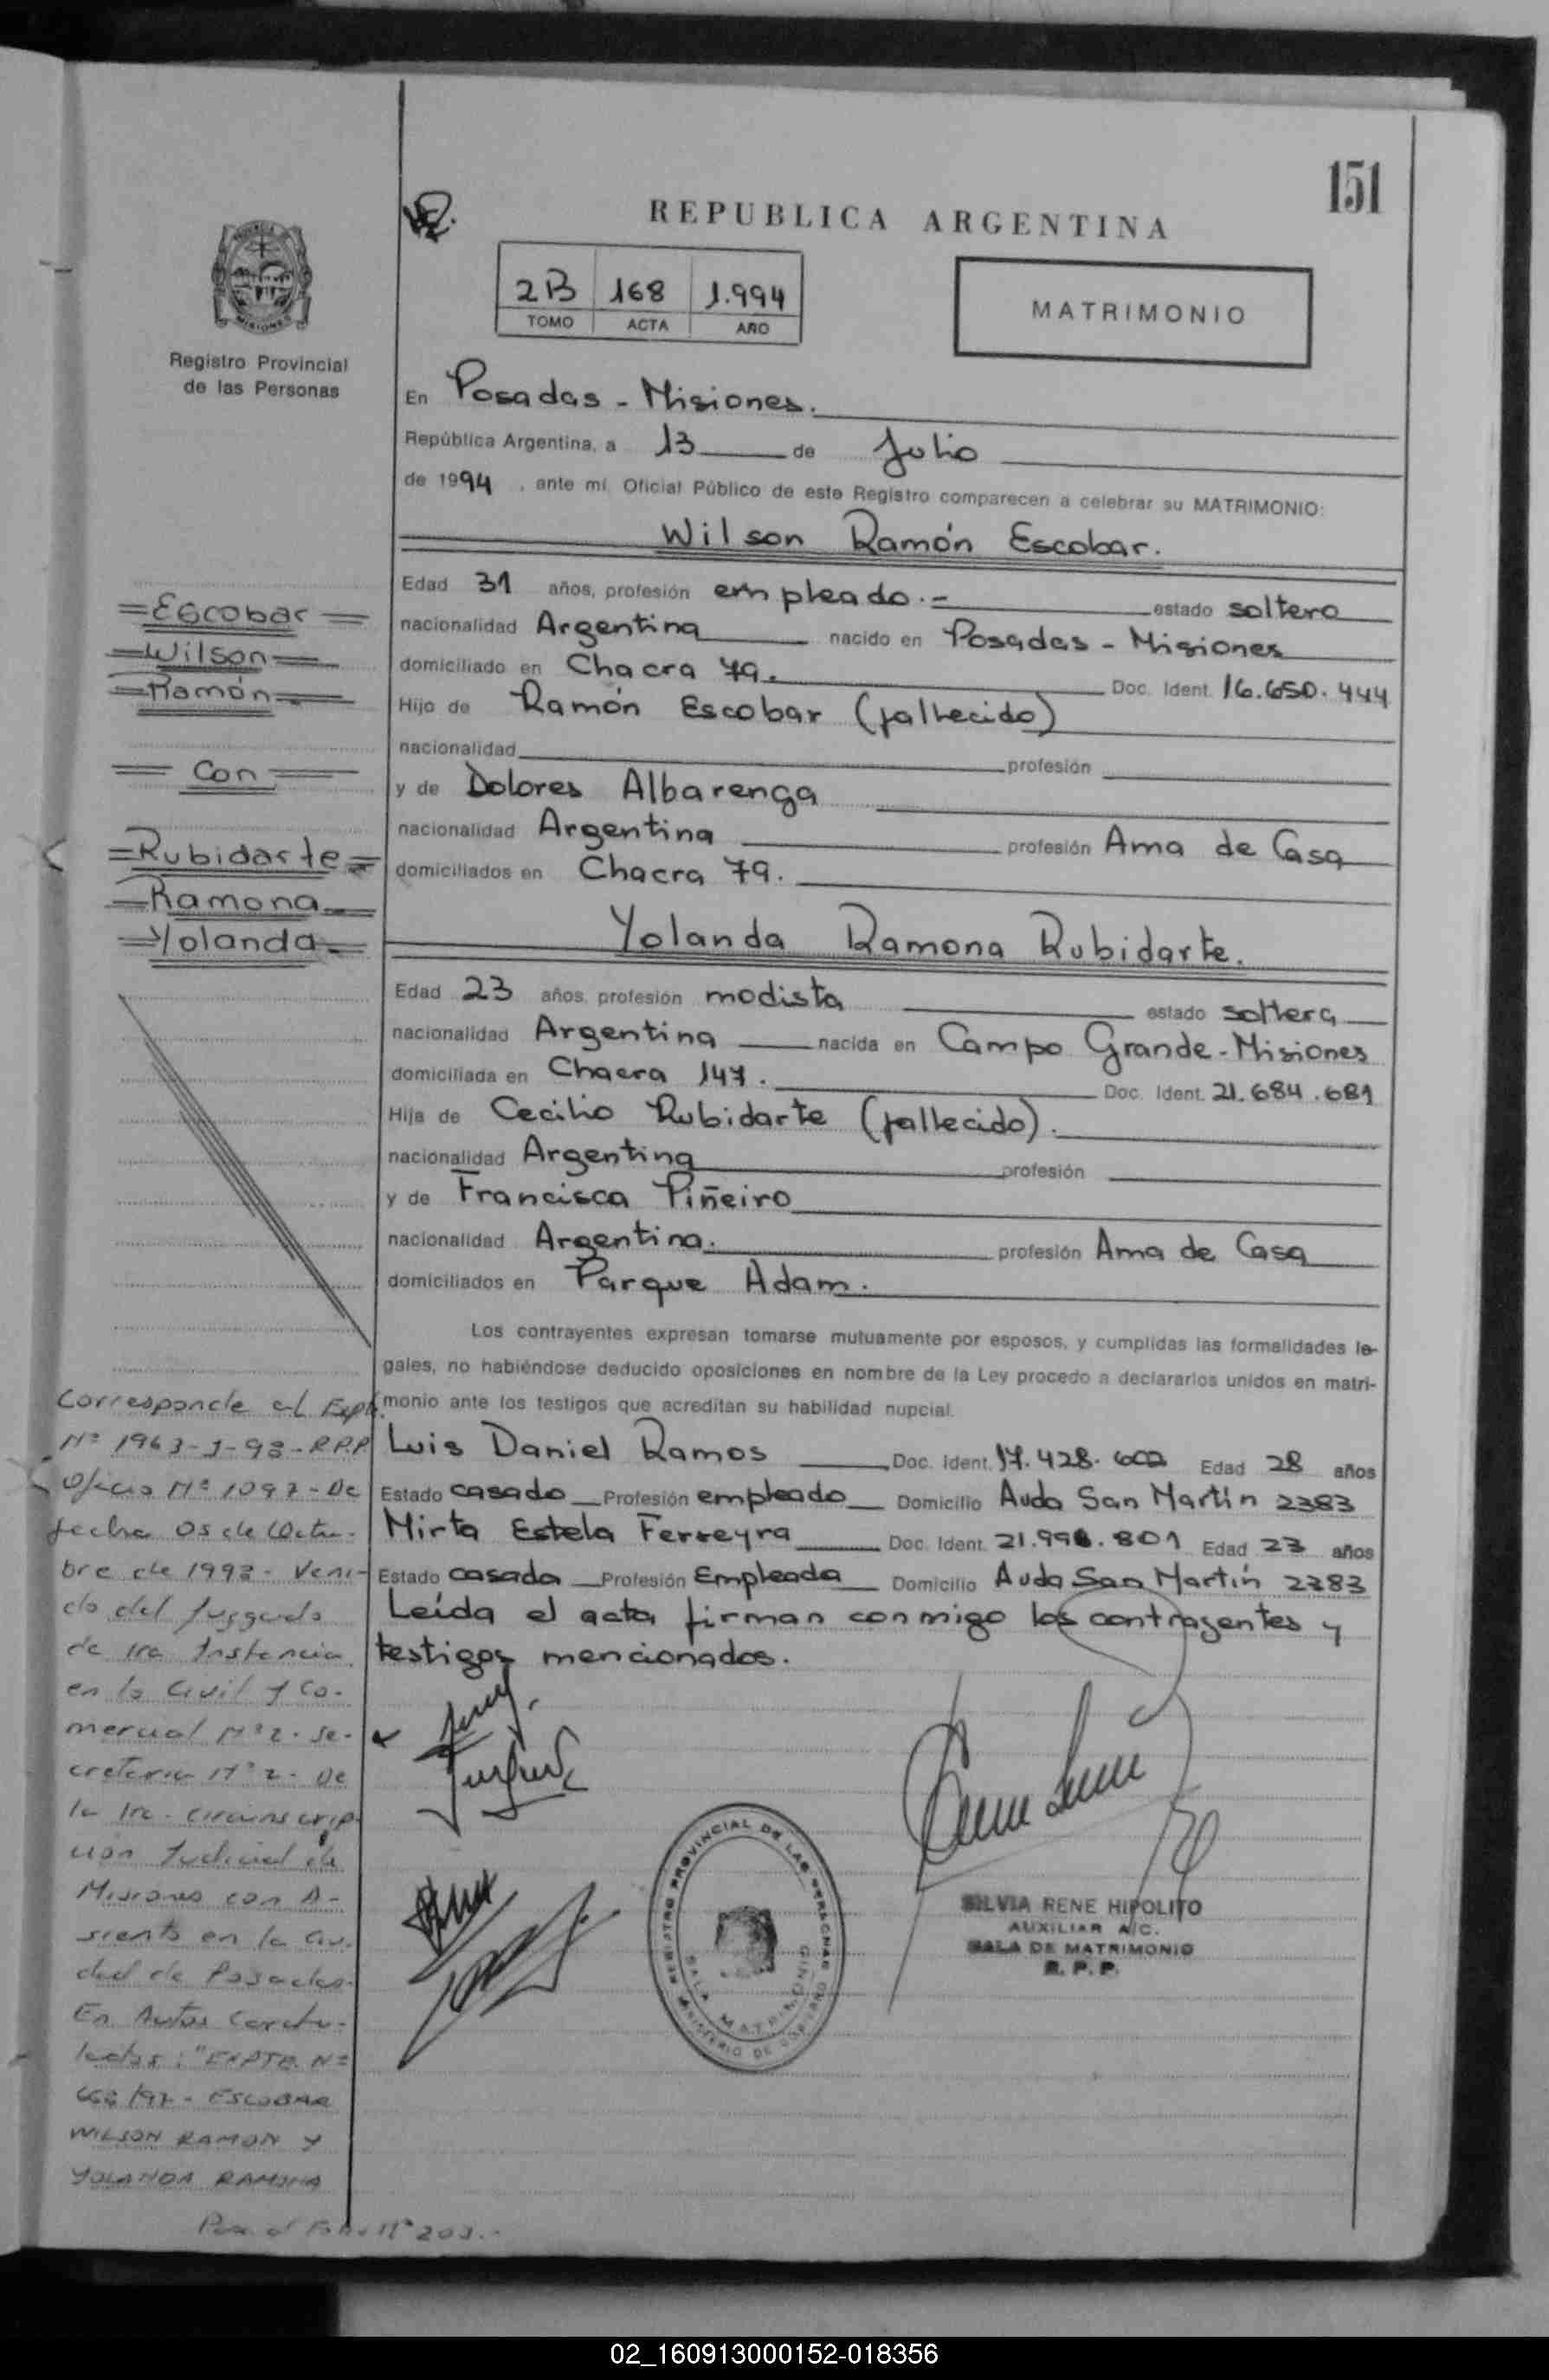 151
REPUBLICA ARGENTINA
2B 168 1.994
TOMO ACTA AÑO
MATRIMONIO
Registro Provincial
de las Personas
En Posadas - Misiones.
República Argentina, a 13 de Julio
de 1994, ante mí Oficial Público de este Registro comparecen a celebrar su MATRIMONIO:
Wilson Ramón Escobar.
Edad 31 años, profesión empleado.- estado soltero
nacionalidad Argentina nacido en Posadas - Misiones
domiciliado en Chacra 79. Doc. Ident. 16.650.444
Hijo de Ramón Escobar (fallecido)
nacionalidad profesión
y de Dolores Albarenga
nacionalidad Argentina profesión Ama de Casa
domiciliados en Chacra 79.
Yolanda Ramona Rubidarte.
Edad 23 años, profesión modista estado soltera
nacionalidad Argentina nacida en Campo Grande - Misiones
domiciliada en Chacra 147. Doc. Ident. 21.684.681
Hija de Cecilio Rubidarte (fallecido).
nacionalidad Argentina profesión
y de Francisca Piñeiro
nacionalidad Argentina. profesión Ama de Casa
domiciliados en Parque Adam.
Los contrayentes expresan tomarse mutuamente por esposos, y cumplidas las formalidades le-
gales, no habiéndose deducido oposiciones en nombre de la Ley procedo a declararlos unidos en matri-
monio ante los testigos que acreditan su habilidad nupcial.
Luis Daniel Ramos Doc. Ident. 17.428. Edad 28 años
Estado casado Profesión empleado Domicilio Avda San Martín 2383
Mirta Estela Ferreyra Doc. Ident. Edad 23 años
Estado casada Profesión Empleada Domicilio Avda San Martín 2383
Leída el acta firman conmigo los contrayentes y
testigos mencionados.
REGISTRO PROVINCIAL DE LAS PERSONAS
SALA MATRIMONIO
MINISTERIO DE GOBIERNO
SILVIA RENE HIPOLITO
AUXILIAR A/C.
SALA DE MATRIMONIO
R. P. P.
Escobar
Wilson
Ramón
Con
Rubidarte
Ramona
Yolanda
Corresponde al Expte.
Nº 1963-J-98-R.P.P
Oficio Nº 1097 - De
fecha 05 de Octu-
bre de 1998 - Veni-
do del Juzgado
de 1ra Instancia
en lo Civil y Co-
mercial Nº 2 - Se-
cretaria Nº 2 - De
la 1ra. Circunscrip
ción Judicial de
Misiones con A-
siento en la Ciu-
dad de Posadas.
En Autos Caratu-
lados: "EXPTE. Nº
/97 - ESCOBAR
WILSON RAMON Y
YOLANDA RAMONA
Pasa al Folio Nº 203.-
02_160913000152-018356